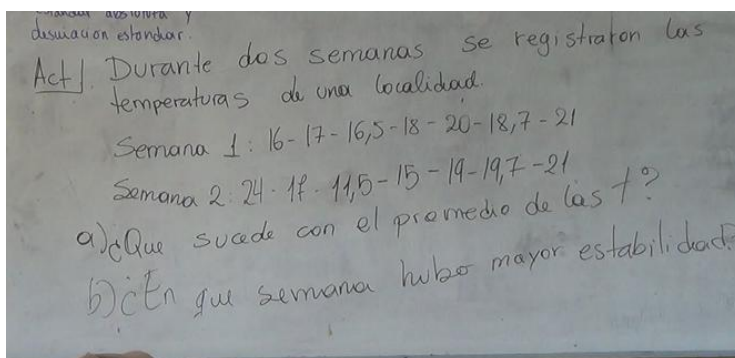 absoluta y
desviacion estandar.
Act 1. Durante dos semanas se registraron las
temperaturas de una localidad.
Semana 1: 16 - 17 - 16,5 - 18 - 20 - 18,7 - 21
Semana 2: 24 - 17 - 11,5 - 15 - 19 - 19,7 - 21
a) ¿Que sucede con el promedio de las t?
b) ¿En que semana hubo mayor estabilidad?